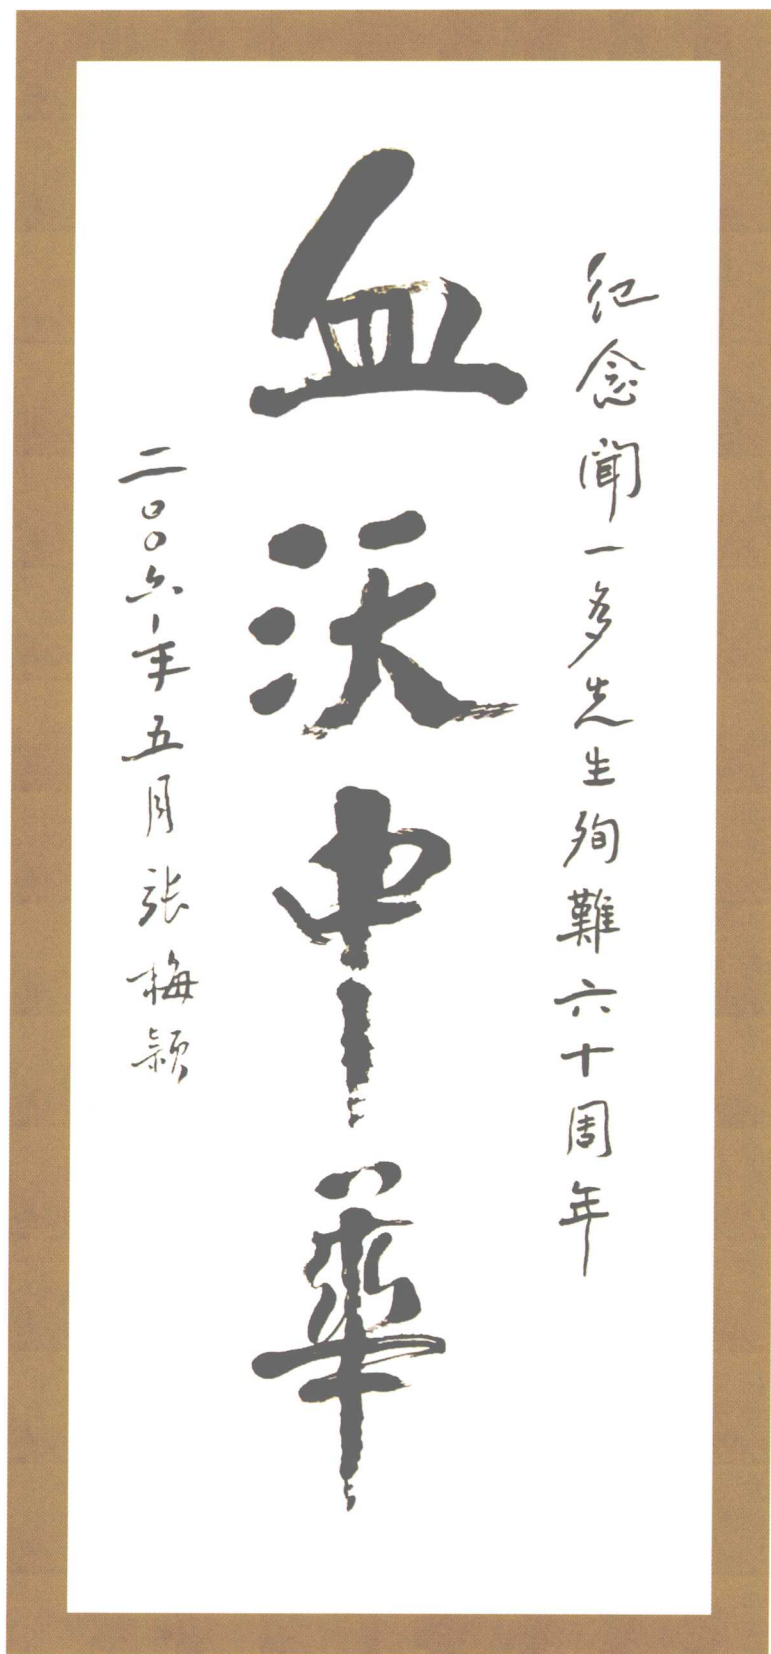 纪念聞一多先生殉難六十周年
血沃中華
二〇〇六年五月張梅颖